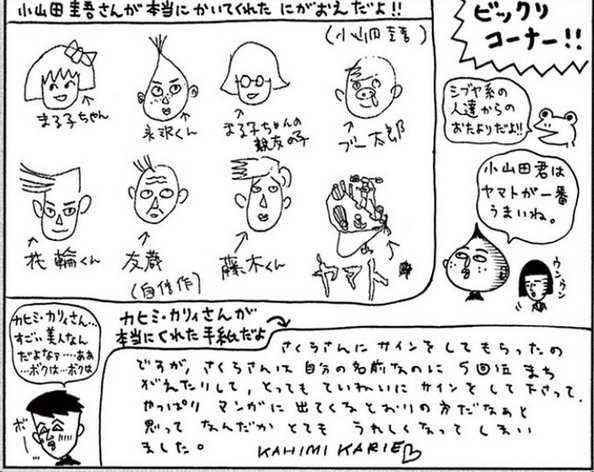 小山田圭吾さんが本当にかいてくれた にがおえだよ!!
(小山田圭吾)
まる子ちゃん
永沢くん
まる子ちゃんの
親友の子
ブー太郎
花輪くん
友蔵
(自信作)
藤木くん
ヤマト
ビックリ
コーナー!!
シブヤ系の
人達からの
おたよりだよ!!
小山田君は
ヤマトが一番
うまいね。
ウンウン
カヒミ・カリィさん…
すごい美人なん
だよなァ……ああ
…ボクは…ボクは
ボーッ
カヒミ・カリィさんが
本当にくれた手紙だよ
さくらさんにサインをしてもらったの
ですが、さくらさんは自分の名前なのに5回位まち
がえたりして、とってもていねいにサインをして下さって、
やっぱりマンガに出てくるとおりの方だなぁと
思ってなんだかとてもうれしくなってしまい
ました。 KAHIMI KARIE♡